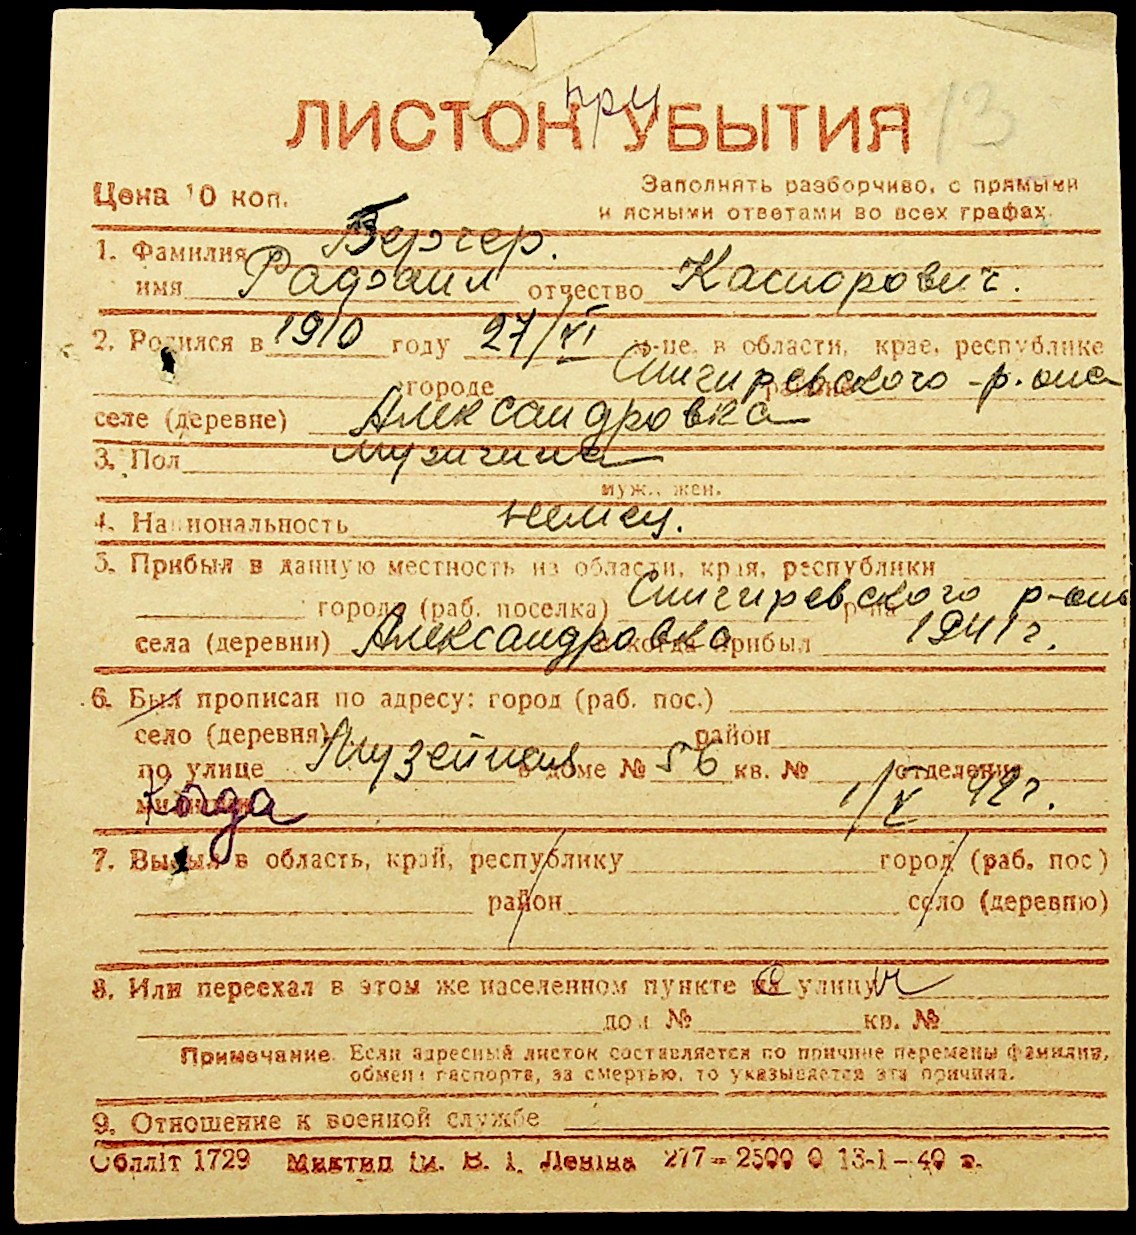 при
ЛИСТОК УБЫТИЯ 13
Цена 10 коп. Заполнять разборчиво, с прямыми
и ясными ответами во всех графах.
1. Фамилия Бергер.
имя Радзаил отчество Каспорович.
2. Родился в 1910 году 27/VI в области, крае, республике
городе Снигиревского р-она
селе (деревне) Александровка
3. Пол мужчина
муж., жен.
4. Национальность немец.
5. Прибыл в данную местность из области, края, республики
города (раб. поселка) Снигиревского р-она
села (деревни) Александровка и когда прибыл 1941 г.
6. Был прописан по адресу: город (раб. пос.)
село (деревня) район
по улице Музейная в доме № 56 кв. № отделения
милиции Когда 1/X 42 г.
7. Выбыл в область, край, республику город (раб. пос)
район село (деревню)
8. Или переехал в этом же населенном пункте на улицу
дом № кв. №
Примечание. Если адресный листок составляется по причине перемены фамилии,
обмена паспорта, за смертью, то указывается эта причина.
9. Отношение к военной службе
Облліт 1729 Миктип ім. В. І. Леніна 277—2500 0 13-1—40 г.